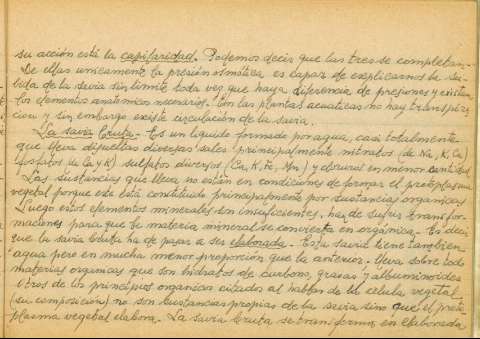 su acción está la capilaridad. Podemos decir que las tres se completan.
De ellas unicamente la presión osmótica es capaz de explicarnos la su-
bida de la savia sin limite toda vez que haya diferencia de presiones y existan
los elementos anatómicos necesarios. En las plantas acuaticas no hay transpira-
cion y sin embargo existe circulación de la savia.
La savia bruta.- Es un liquido formado por agua, casi totalmente
que lleva disueltas diversas sales principalmente nitratos (de Na, K, Ca)
fosfatos de Ca y K) sulfatos diversos (Ca, K, Fe, Mn) y cloruros en menor cantidad
Las sustancias que lleva no están en condiciones de formar el protoplasma
vegetal porque este está constituido principalmente por sustancias organicas
Luego estos elementos minerales son insuficientes, han de sufrir transfor-
maciones para que la materia mineral se convierta en orgánica. Es decir
que la savia bruta ha de pasar a ser elaborada. Esta savia tiene tambien
agua pero en mucha menor proporción que la anterior. Lleva sobre todo
materias organicas que son hidratos de carbono, grasas y albuminoides
Otros de los principios organicos citados al hablar de la celula vegetal
(su composición) no son sustancias propias de la savia sino que el proto-
plasma vegetal elabora. La savia bruta se transforma en elaborada